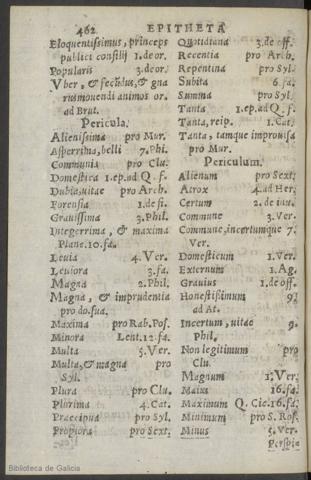 462 EPITHETA
Eloquentissimus, princeps
publici consilij 1.de or.
Popularis 3.de or.
Vber, & fecũdus, & gna
rus mouendi animos or.
ad Brut.
Pericula.
Alienissima pro Mur.
Asperrima, belli 7. Phi.
Communia pro Clu.
Domestica 1. ep.ad Q. f.
Dubia, uitae pro Arch.
Forensia 1.de fi.
Grauissima 3. Phil.
Integerrima, & maxima
Planc. 10. fa.
Leuia 4. Ver.
Leuiora 3. fa.
Magna 2. Phil.
Magna, & imprudentia
pro do.sua.
Maxima pro Rab. Pos.
Minora Lent. 12. fa.
Multa 5. Ver.
Multa, & magna pro
Syl.
Plura pro Clu.
Plurima 4. Cat.
Praecipua pro Syl.
Propiora pro Sext.
Quotidiana 3.de off.
Recentia pro Arch.
Repentina pro Syl.
Subita 6. fa.
Summa pro Syl.
Tanta 1. ep.ad Q. f.
Tanta, reip. 1. Cat.
Tanta, tamque improuisa
pro Mur.
Periculum.
Alienum pro Sext.
Atrox 4. ad Her.
Certum 2. de inu.
Commune 3. Ver.
Commune, incertumque 7.
Ver.
Domesticum 1. Ver.
Externum 1. Ag.
Grauius 1.de off.
Honestissimum 9.
ad At.
Incertum, uitae 9.
Phil.
Non legitimum pro
Clu.
Magnum 1. Ver.
Maius 16. fa.
Maximum Q. Cic. 16. fa.
Minimum pro S. Ros.
Minus 5. Ver.
Biblioteca de Galicia